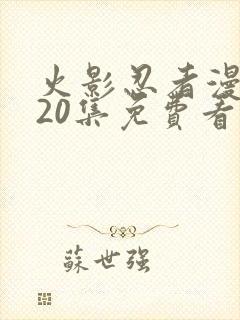 火影忍者漫
20集免費看
蘇世强